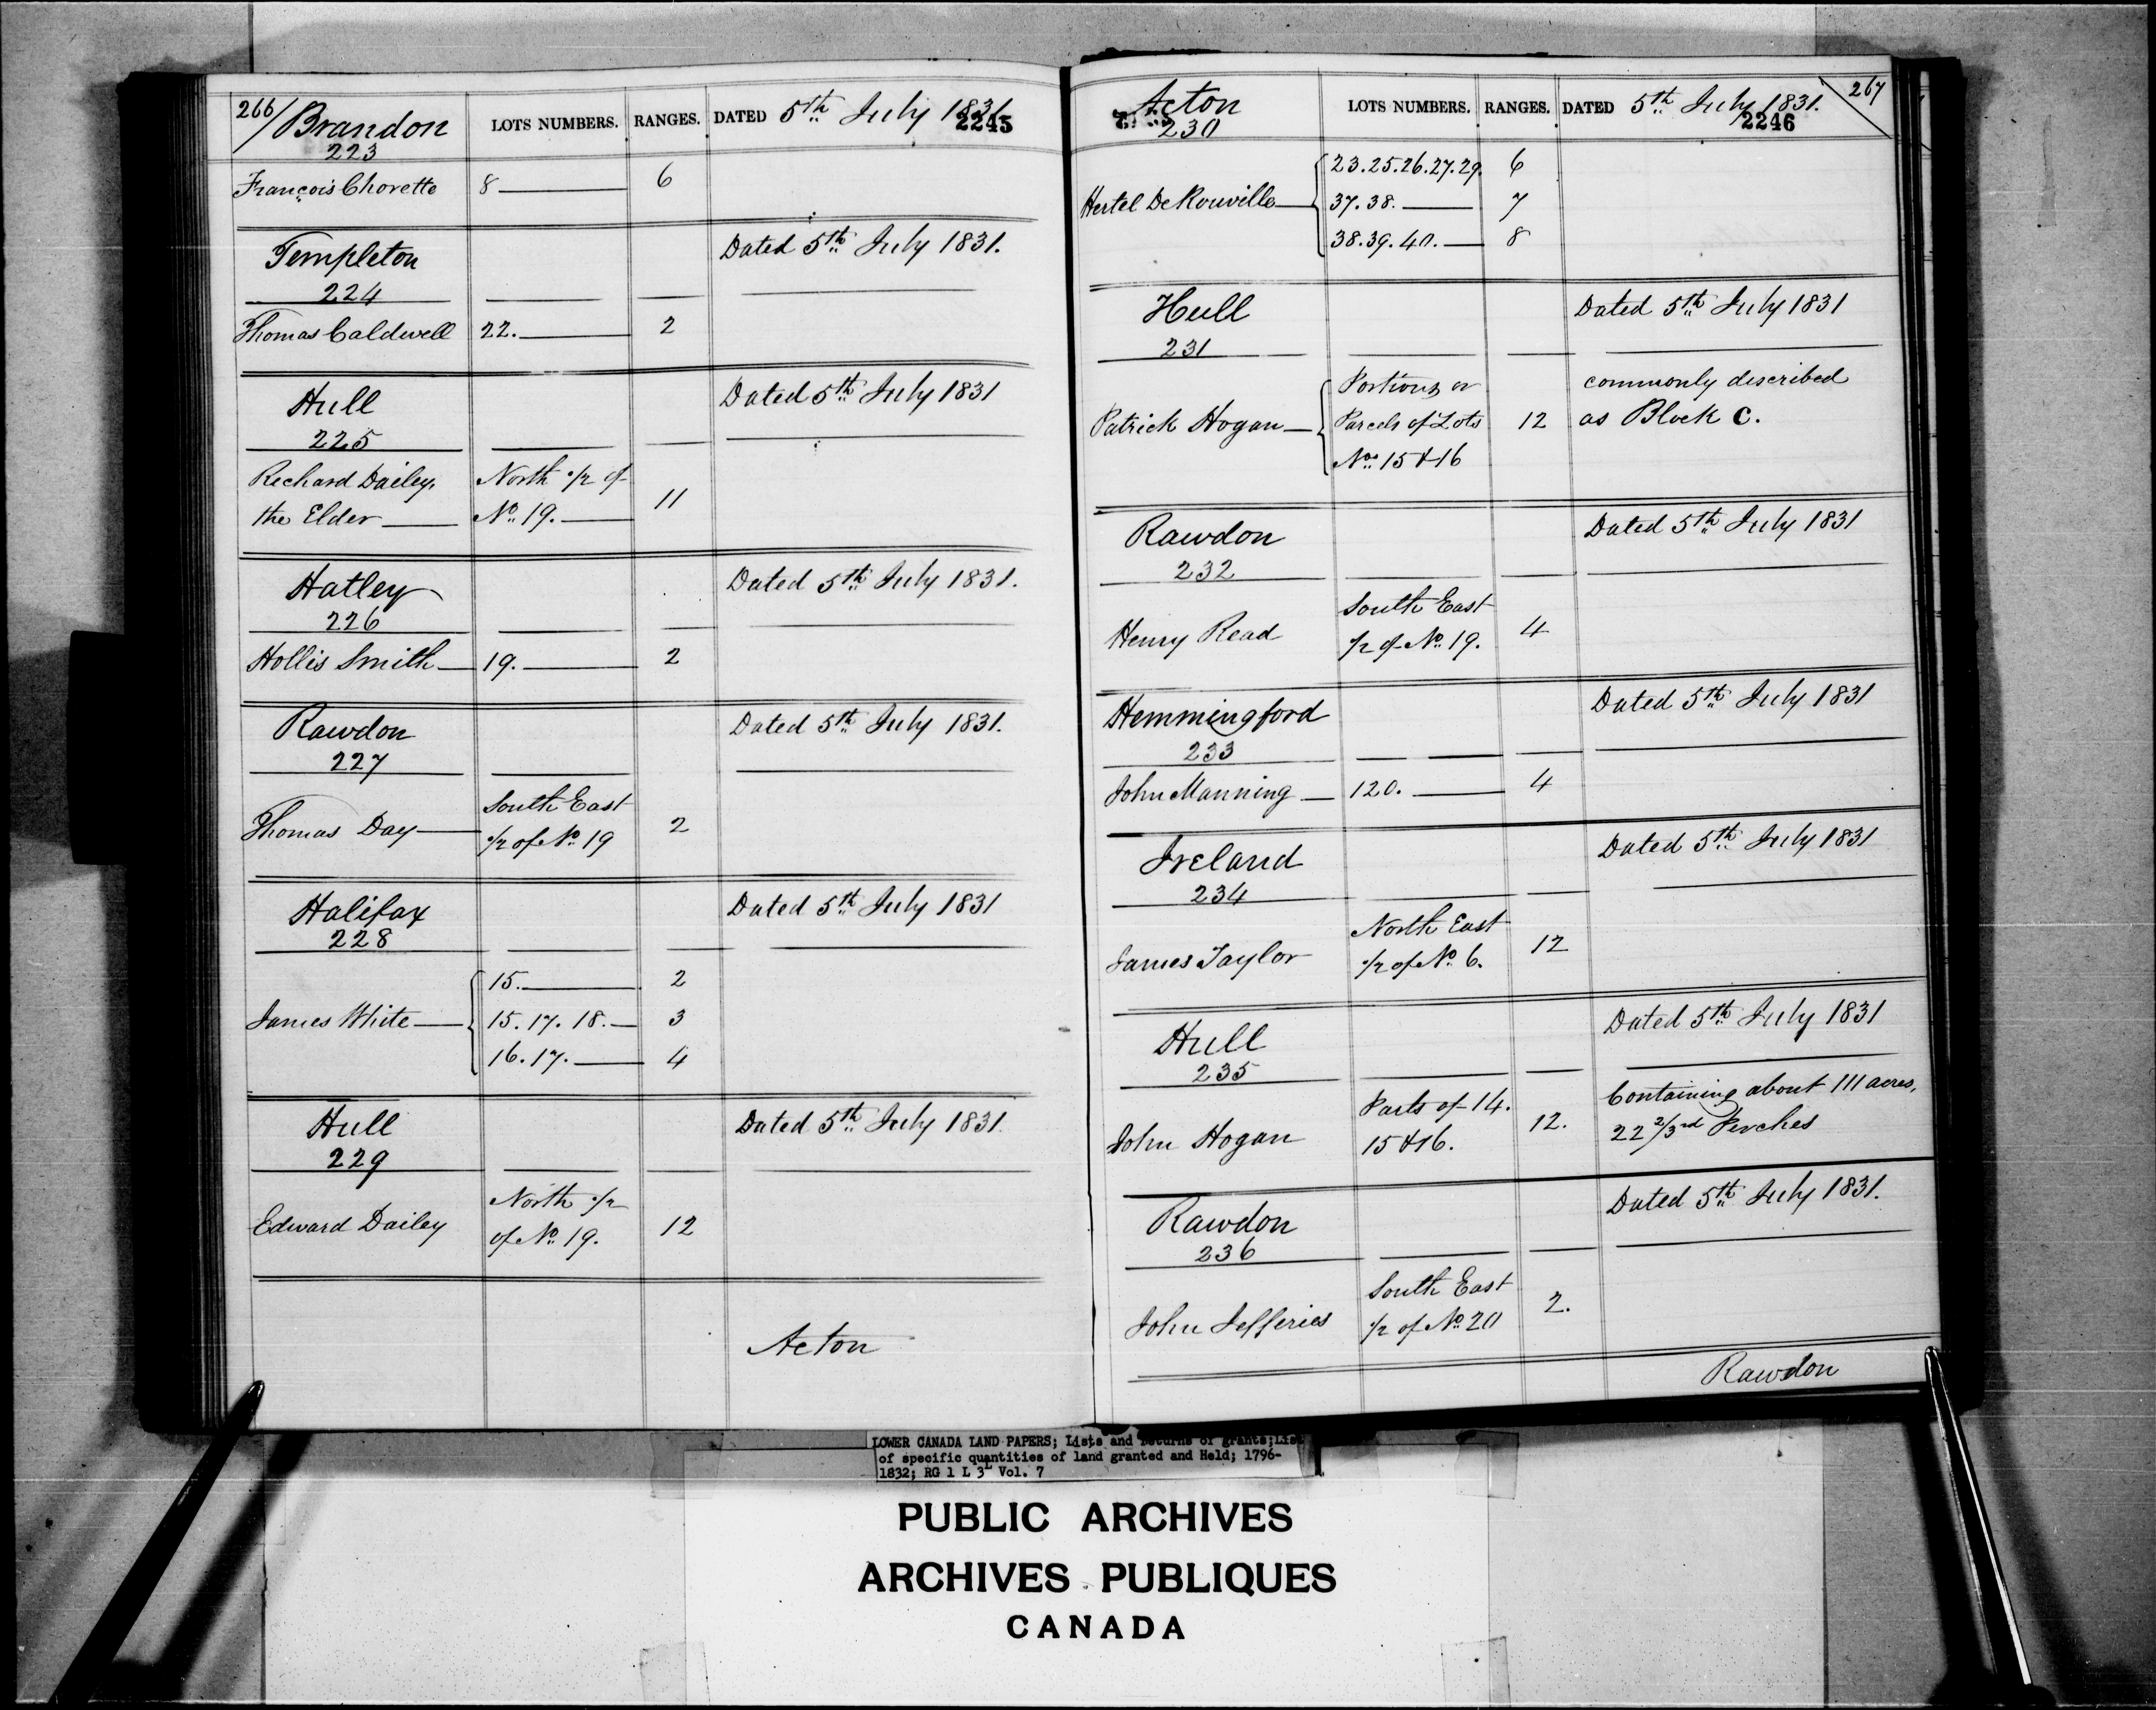 266/ Brandon LOTS NUMBERS. RANGES. DATED 5th July 1831
223 2245
François Chorette 8 6
Templeton Dated 5th July 1831.
224
Thomas Caldwell 22. 2
Hull Dated 5th July 1831
225
Richard Dailey, North 1/2 of
the Elder No. 19. 11
Hatley Dated 5th July 1831.
226
Hollis Smith 19. 2
Rawdon Dated 5th July 1831.
227
South East
Thomas Day 1/2 of No. 19 2
Halifax Dated 5th July 1831
228
15. 2
James White 15. 17. 18. 3
16. 17. 4
Hull Dated 5th July 1831.
229
North 1/2
Edward Dailey of No. 19. 12
Acton
Acton LOTS NUMBERS. RANGES. DATED 5th July 1831. 267
230 2246
23. 25. 26. 27. 29. 6
Hertel DeRouville 37. 38. 7
38. 39. 40. 8
Hull Dated 5th July 1831
231
Portions or commonly described
Patrick Hogan Parcels of Lots 12 as Block C.
Nos. 15 & 16
Rawdon Dated 5th July 1831
232
South East
Henry Read 1/2 of No. 19. 4
Hemmingford Dated 5th July 1831
233
John Manning 120. 4
Ireland Dated 5th July 1831
234
North East
James Taylor 1/2 of No. 6. 12
Hull Dated 5th July 1831
235
Parts of 14. Containing about 111 acres,
John Hogan 15 & 16. 12. 22 2/3rd Perches
Rawdon Dated 5th July 1831.
236
South East
John Jefferies 1/2 of No. 20 2.
Rawdon
LOWER CANADA LAND PAPERS; Lists and Returns of grants; List
of specific quantities of land granted and Held; 1796-
1832; RG 1 L 3L Vol. 7
PUBLIC ARCHIVES
ARCHIVES PUBLIQUES
CANADA